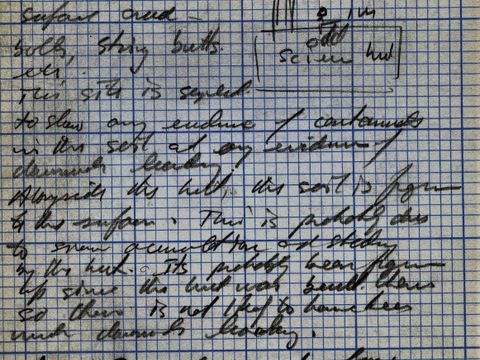 surface and
bolts, string butts.
etc,
Scien hut
This site is sampled
to show any evidence of contaminants
in the soil and any evidence of
downwards leaching
Alongside this hut, the soil is frozen
to the surface. This is probably due
to snow accumulation and shading
by the hut. Its probably been frozen
up since the hut was built there
so there is not likely to have been
much downwards leaching.